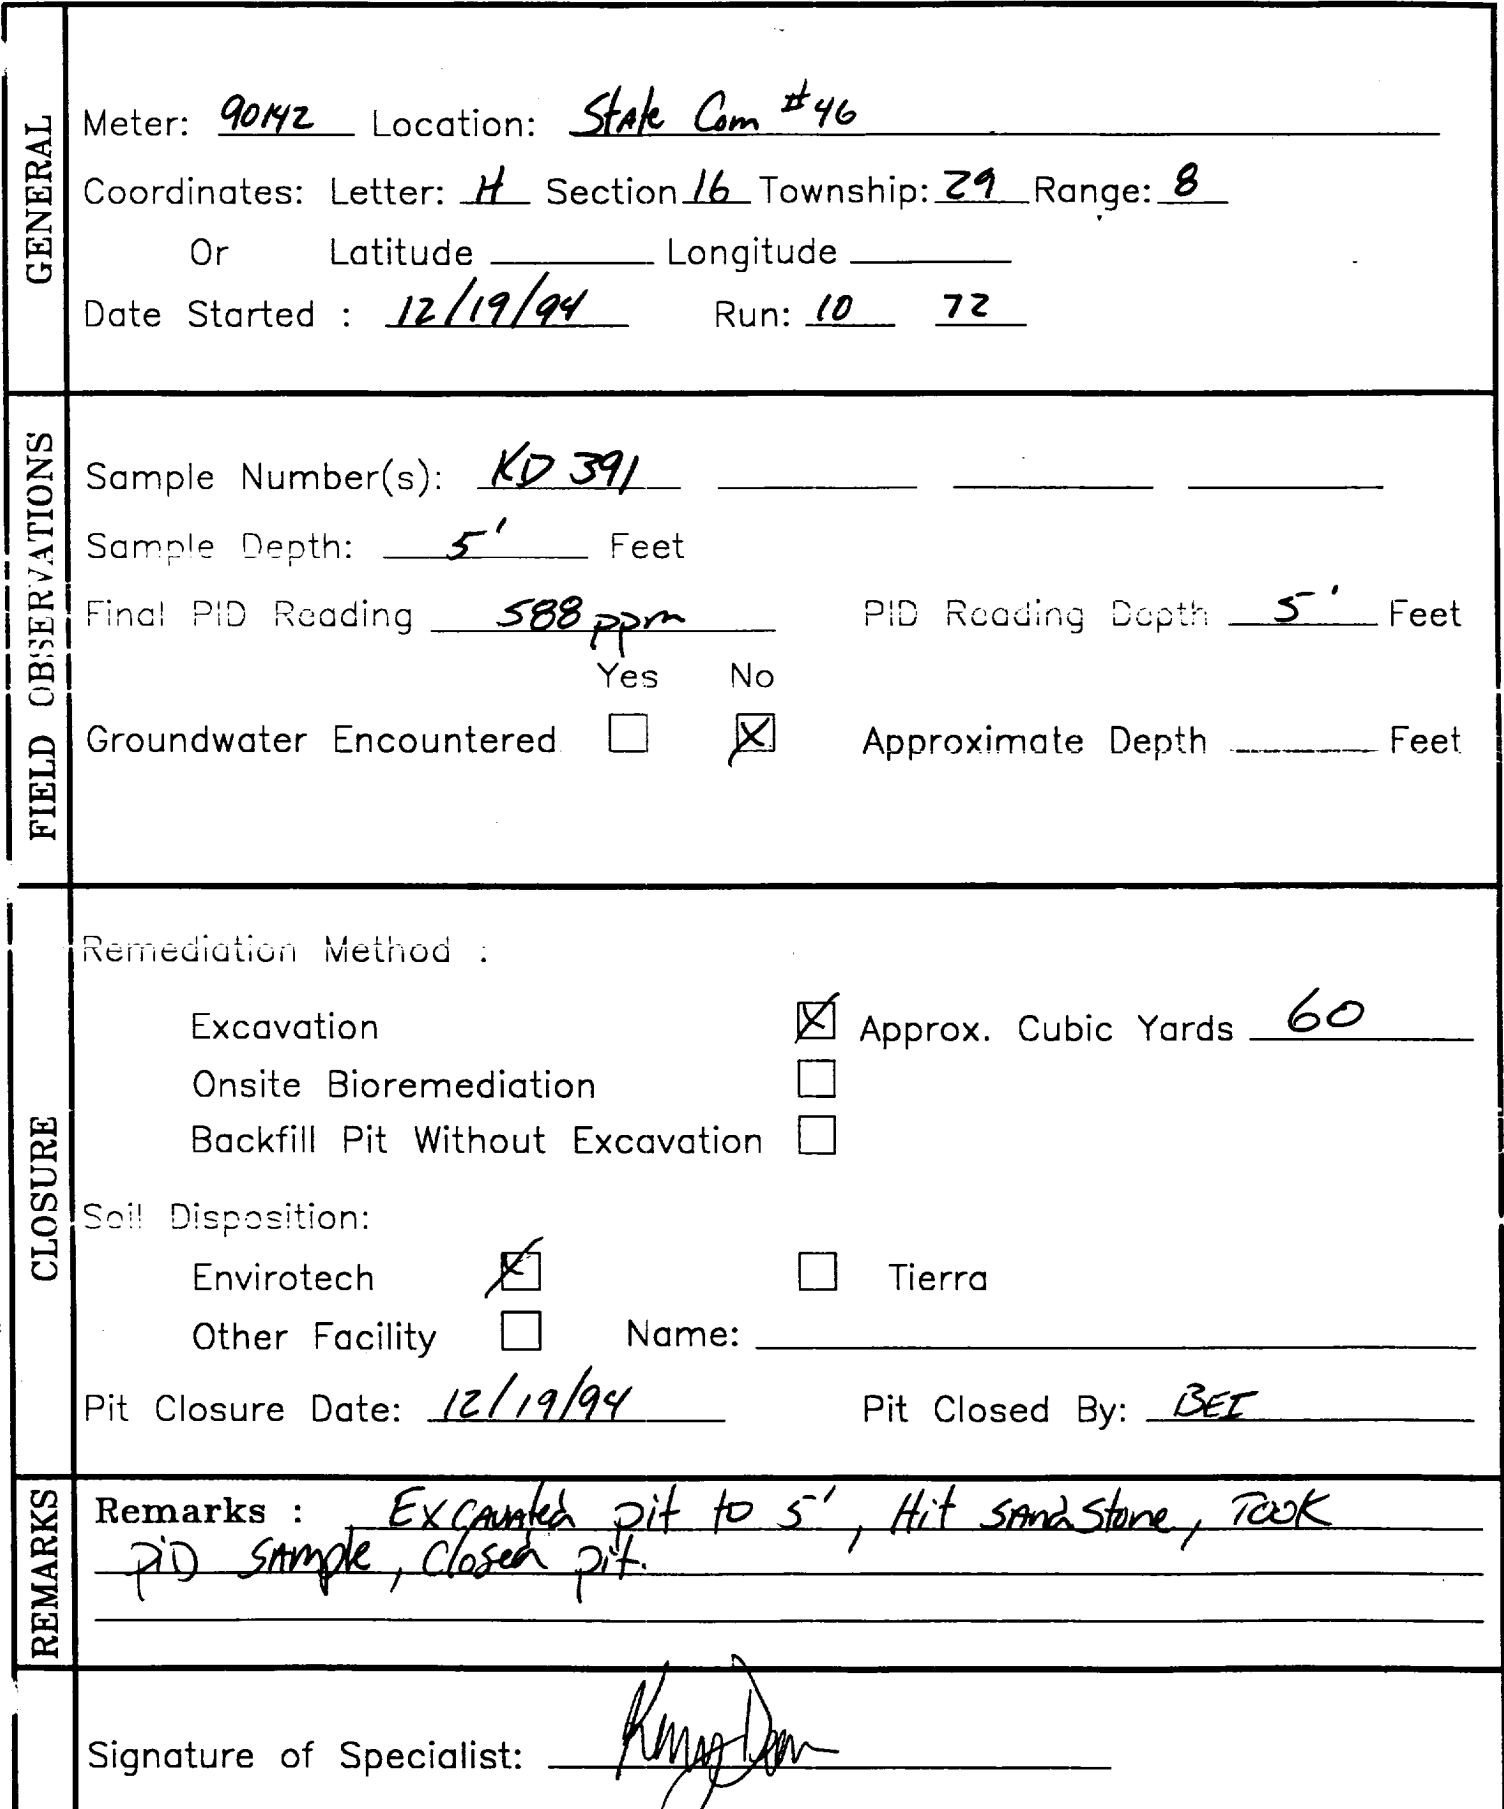 GENERAL
Meter: 90142 Location: State Com #46
Coordinates: Letter: H Section 16 Township: 29 Range: 8
Or Latitude Longitude
Date Started : 12/19/94 Run: 10 72
FIELD OBSERVATIONS
Sample Number(s): KD 391
Sample Depth: 5' Feet
Final PID Reading 588 ppm PID Reading Depth 5' Feet
Yes No
Groundwater Encountered ☐ ☒ Approximate Depth Feet
CLOSURE
Remediation Method :
Excavation ☒ Approx. Cubic Yards 60
Onsite Bioremediation ☐
Backfill Pit Without Excavation ☐
Soil Disposition:
Envirotech ☒ ☐ Tierra
Other Facility ☐ Name:
Pit Closure Date: 12/19/94 Pit Closed By: BEI
REMARKS
Remarks : Excavated pit to 5', Hit sandstone, Took
PID sample, closed pit.
Signature of Specialist: